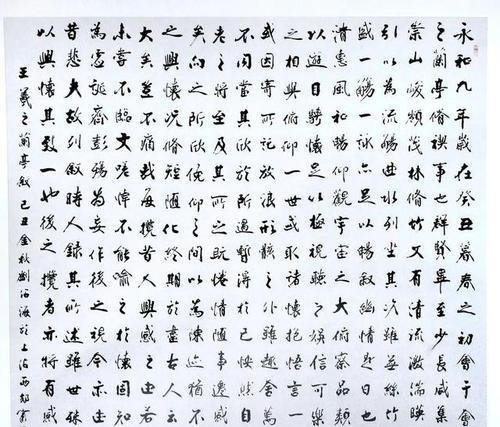 永和九年歲在癸丑暮春之初會于會
之蘭亭脩禊事也群賢畢至少長咸集
崇山峻領茂林脩竹又有清流激湍暎
引以為流觴曲水列坐其次雖無絲竹
盛一觴一詠亦足以暢敘幽情是日也
清惠風和暢仰觀宇宙之大俯察品類
以遊目騁懷足以極視聽之娛信可樂
之相與俯仰一世或取諸懷抱悟言一
或因寄所託放浪形骸之外雖趣舍萬
不同當其欣於所遇蹔得於己快然自
老之將至及其所之既惓情隨事遷感
矣向之所欣俛仰之間以為陳迹猶不
之興懷況脩短隨化終期於盡古人云
大矣豈不痛哉每攬昔人興感之由若
未嘗不臨文嗟悼不能喻之於懷固知
為虛誕齊彭殤為妄作後之視今亦由
昔悲夫故列敘時人錄其所述雖世殊
以興懷其致一也後之攬者亦將有感
王羲之蘭亭敘己丑金秋劉於上海西郊